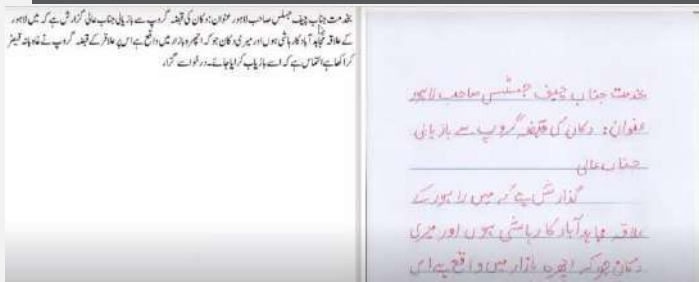 بخدمت جناب چیف جسٹس صاحب لاہور عنوان: دکان کی قبضہ گروپ سے بازیابی جناب عالی گزارش ہے کہ میں لاہور
کے علاقہ مجاہد آباد کا رہائشی ہوں اور میری دکان جو کہ اچھرہ بازار میں واقع ہے اس پر علاقہ کے قبضہ گروپ نے
کرا کھا ہے التماس ہے کہ اسے بازیاب کرایا جائے۔ درخواست گزار
بخدمت جناب چیف جسٹس صاحب لاہور
عنوان: دکان کی قبضہ گروپ سے بازیابی
جناب عالی
گذارش ہے کہ میں لاہور کے
علاقہ مجاہد آباد کا رہائشی ہوں اور میری
دکان جو کہ اچھرہ بازار میں واقع ہے اس